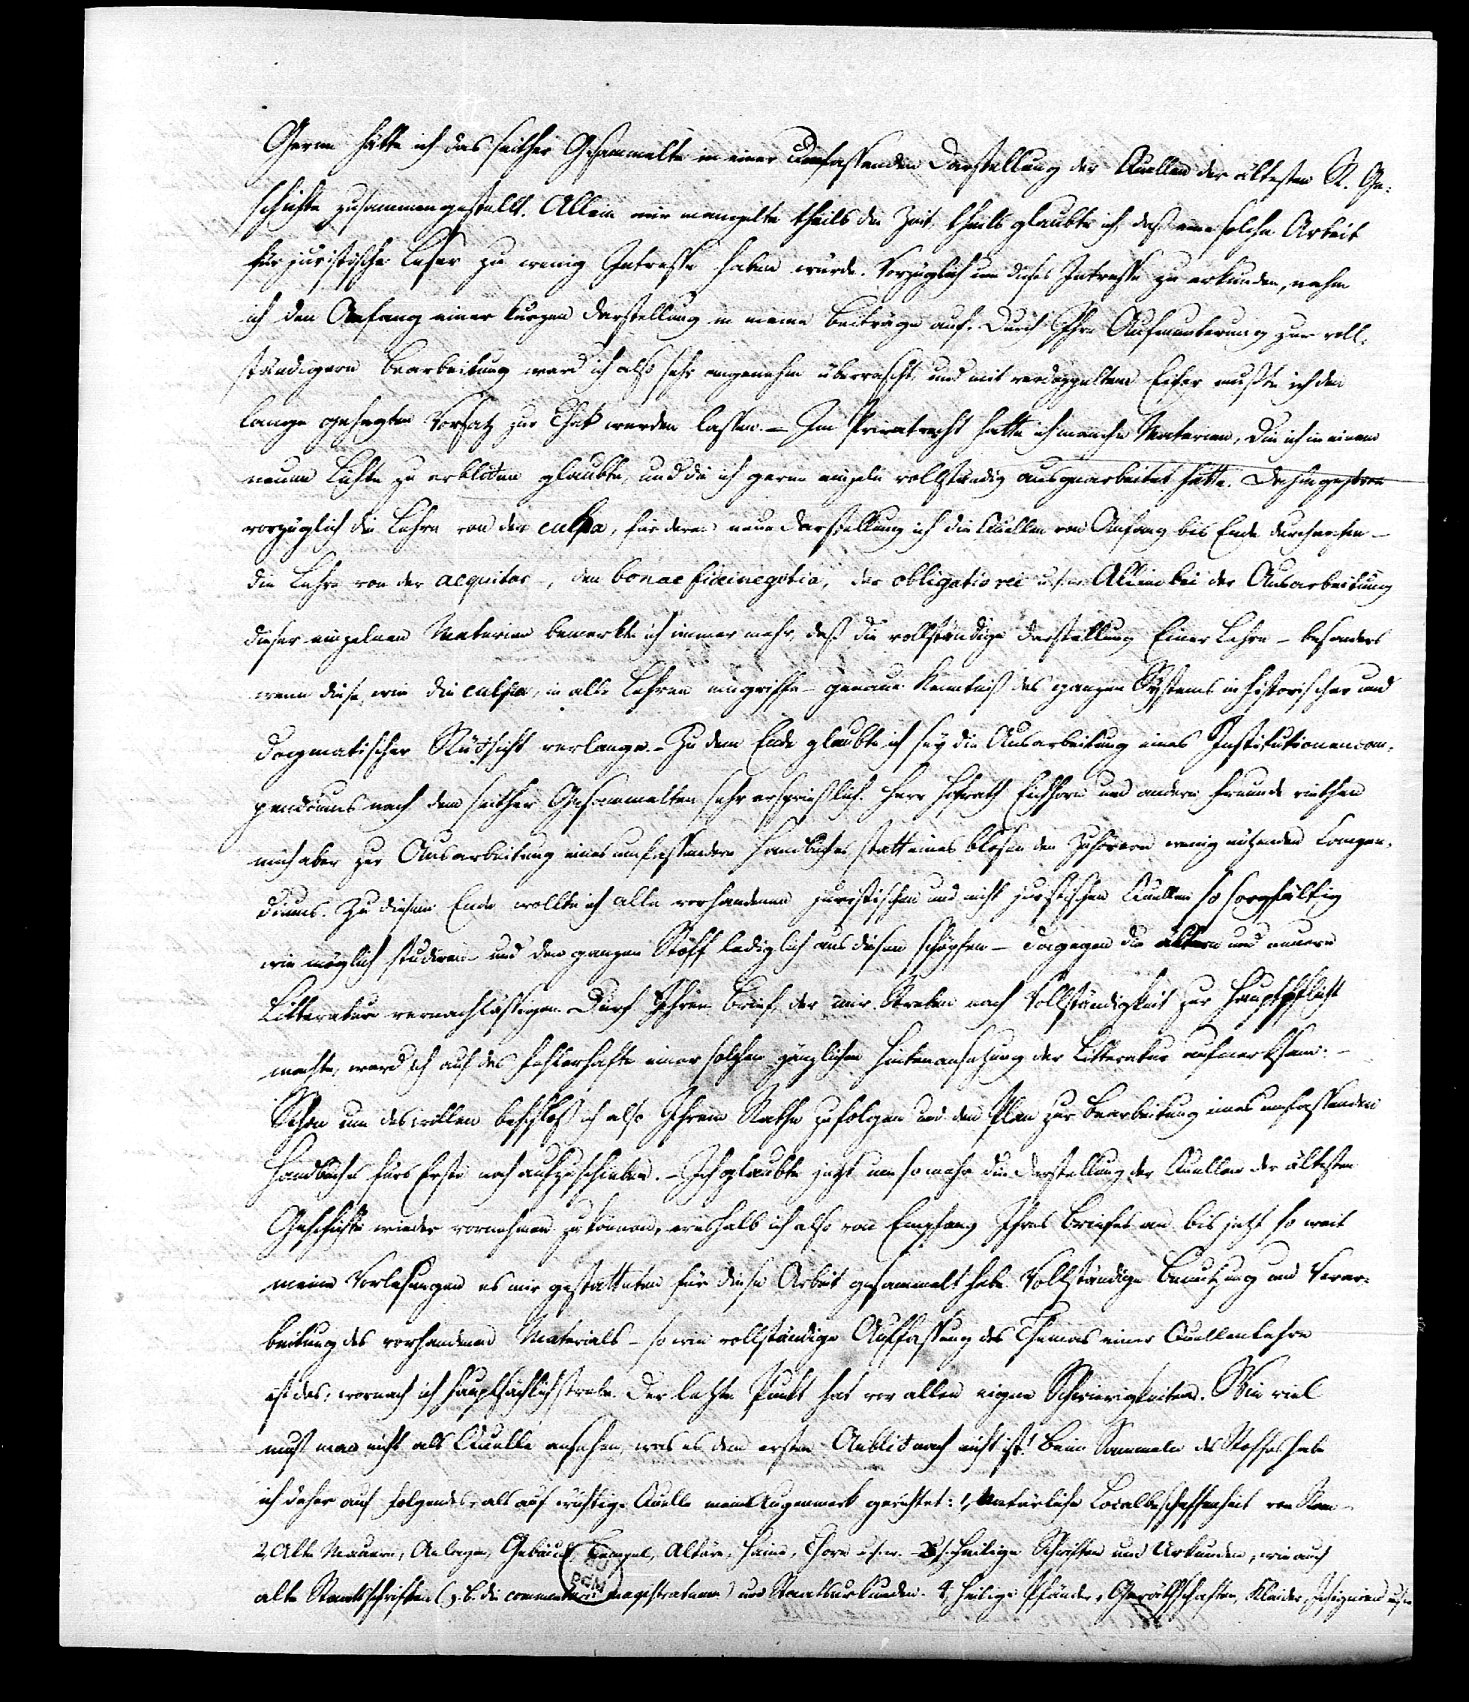 Gerne hätte ich das seither Gesammelte in einer umfassenden Darstellung der Quellen der ältesten R. Ge-
schichte zusammengestellt. Allein mir mangelte theils die Zeit, theils glaubte ich daß eine solche Arbeit
für juristische Leser zu wenig Interesse haben würde. Vorzüglich um dieses Interesse zu erkunden, nahm
ich den Anfang einer kurzen Darstellung in meine Beiträge auf. Durch Ihre Aufmunterung zur voll-
ständigern Bearbeitung ward ich also sehr angenehm überrascht, und mit verdoppeltem Eifer mußte ich den
lange gehegten Vorsatz zur That werden lassen. – Im Privatrecht hatte ich manche Materien, die ich in einem
neuen Lichte zu erblicken glaubte, und die ich gerne einzeln vollständig ausgearbeitet hätte. Dahin gehören
vorzüglich die Lehre von der culpa, für deren neue Darstellung ich die Quellen von Anfang bis Ende durchgehen –
die Lehre von der aequitas –, den bonae fidei negotia, der obligatio rei u.s.w. Allein bei der Ausarbeitung
dieser einzelnen Materien bemerkte ich immer mehr, daß die vollständige Darstellung Einer Lehre – besonders
wenn diese, wie die culpa, in alle Lehren eingriffe – genaue Kenntniß des ganzen Systems in historischer und
dogmatischer Rücksicht verlange. – Zu dem Ende glaubte ich sey die Ausarbeitung eines Institutionencom-
pendiums nach dem seither Gesammelten sehr ersprießlich. Herr Hofrath Eichhorn und andere Freunde riethen
mich aber zur Ausarbeitung eines umfassendern Handbuches statt eines blosen den Zuhörern wenig nützenden Compen-
diums. Zu diesem Ende wollte ich alle vorhandenen juristischen und nicht juristischen Quellen so sorgfältig
wie möglich studiren – und den ganzen Stoff lediglich aus diesen schöpfen – dagegen die ältere und neuere
Litteratur vernachlässigen. Durch Ihren Brief, der mir Streben nach Vollständigkeit zur Hauptpflicht
machte, ward ich auf das Fehlerhafte einer solchen gänzlichen Hintenansetzung der Litteratur aufmerksam. –
Schon um deswillen beschloß ich also Ihrem Rathe zu folgen und den Plan zur Bearbeitung eines umfassenden
Handbuchs fürs Erste noch aufzuschieben. – Ich glaubte jetzt um so mehr die Darstellung der Quellen der ältesten
Geschichte wieder vornehmen zu können, weshalb ich also von Empfang Ihres Briefes an bis jetzt so weit
meine Vorlesungen es mir gestatteten für diese Arbeit gesammelt habe. Vollständige Benutzung und Verar-
beitung des vorhandenen Materials – so wie vollständige Auffassung des Themas einer Quellenlehre
ist das, wornach ich hauptsächlich strebe. Der letzte Punkt hat vor allen eigne Schwierigkeiten. Wie viel
muß man nicht als Quelle ansehen, was es dem ersten Anblick nach nicht ist! Beim Sammeln des Stoffes habe
ich daher auf folgendes, als auf wichtige Quelle mein Augenmerk gerichtet: 1, Natürliche Localbeschaffenheit von Rom –
2, Alte Mauern, Anlagen, Gebäude, Tempel, Altäre, Haine, Thore u.s.w. – 3, heilige Schriften und Urkunden, wie auch
alte Staatsschriften (z. B. die commentarii magistratuum) und Staatsurkunden. 4, heilige Pfänder, Geräthschaften, Kleider, Insignien u.s.w.